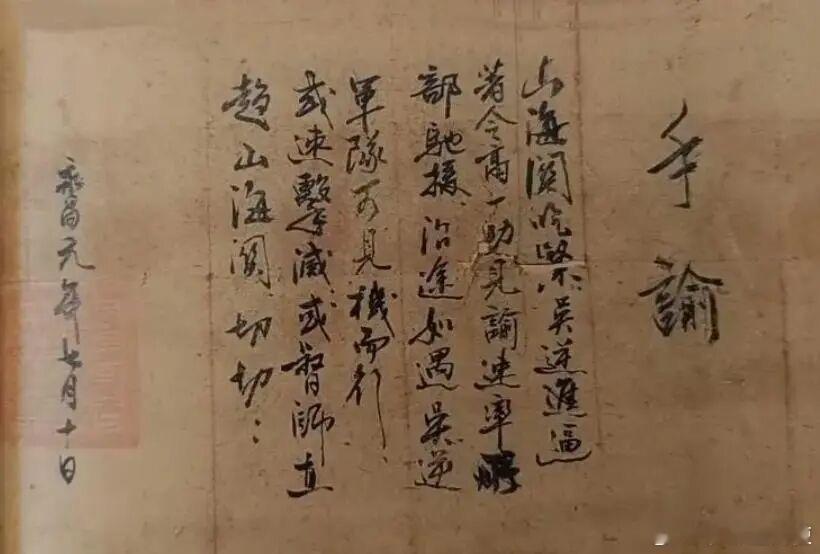 手諭
山海関吃緊吳逆進逼
着令高一功見諭速率所
部馳援、沿途如遇吳逆
軍隊可見機而行、
或速擊滅或督師直
趨山海関、切切、
永昌元年七月十日